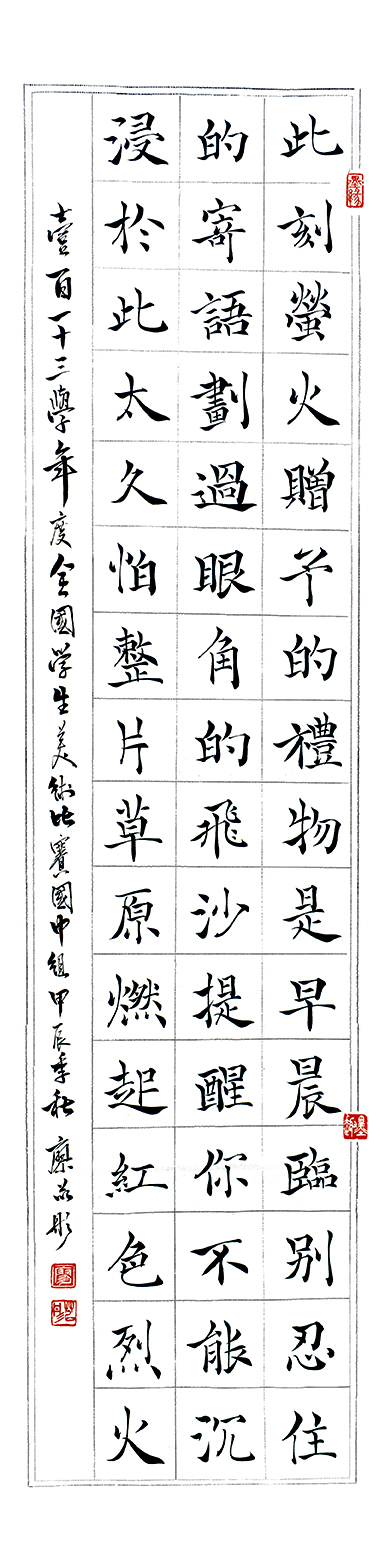 此刻螢火贈予的禮物是早晨臨別忍住
的寄語劃過眼角的飛沙提醒你不能沉
浸於此太久怕整片草原燃起紅色烈火
壹百一十三學年度全國学生美術比賽國中組甲辰季秋廖